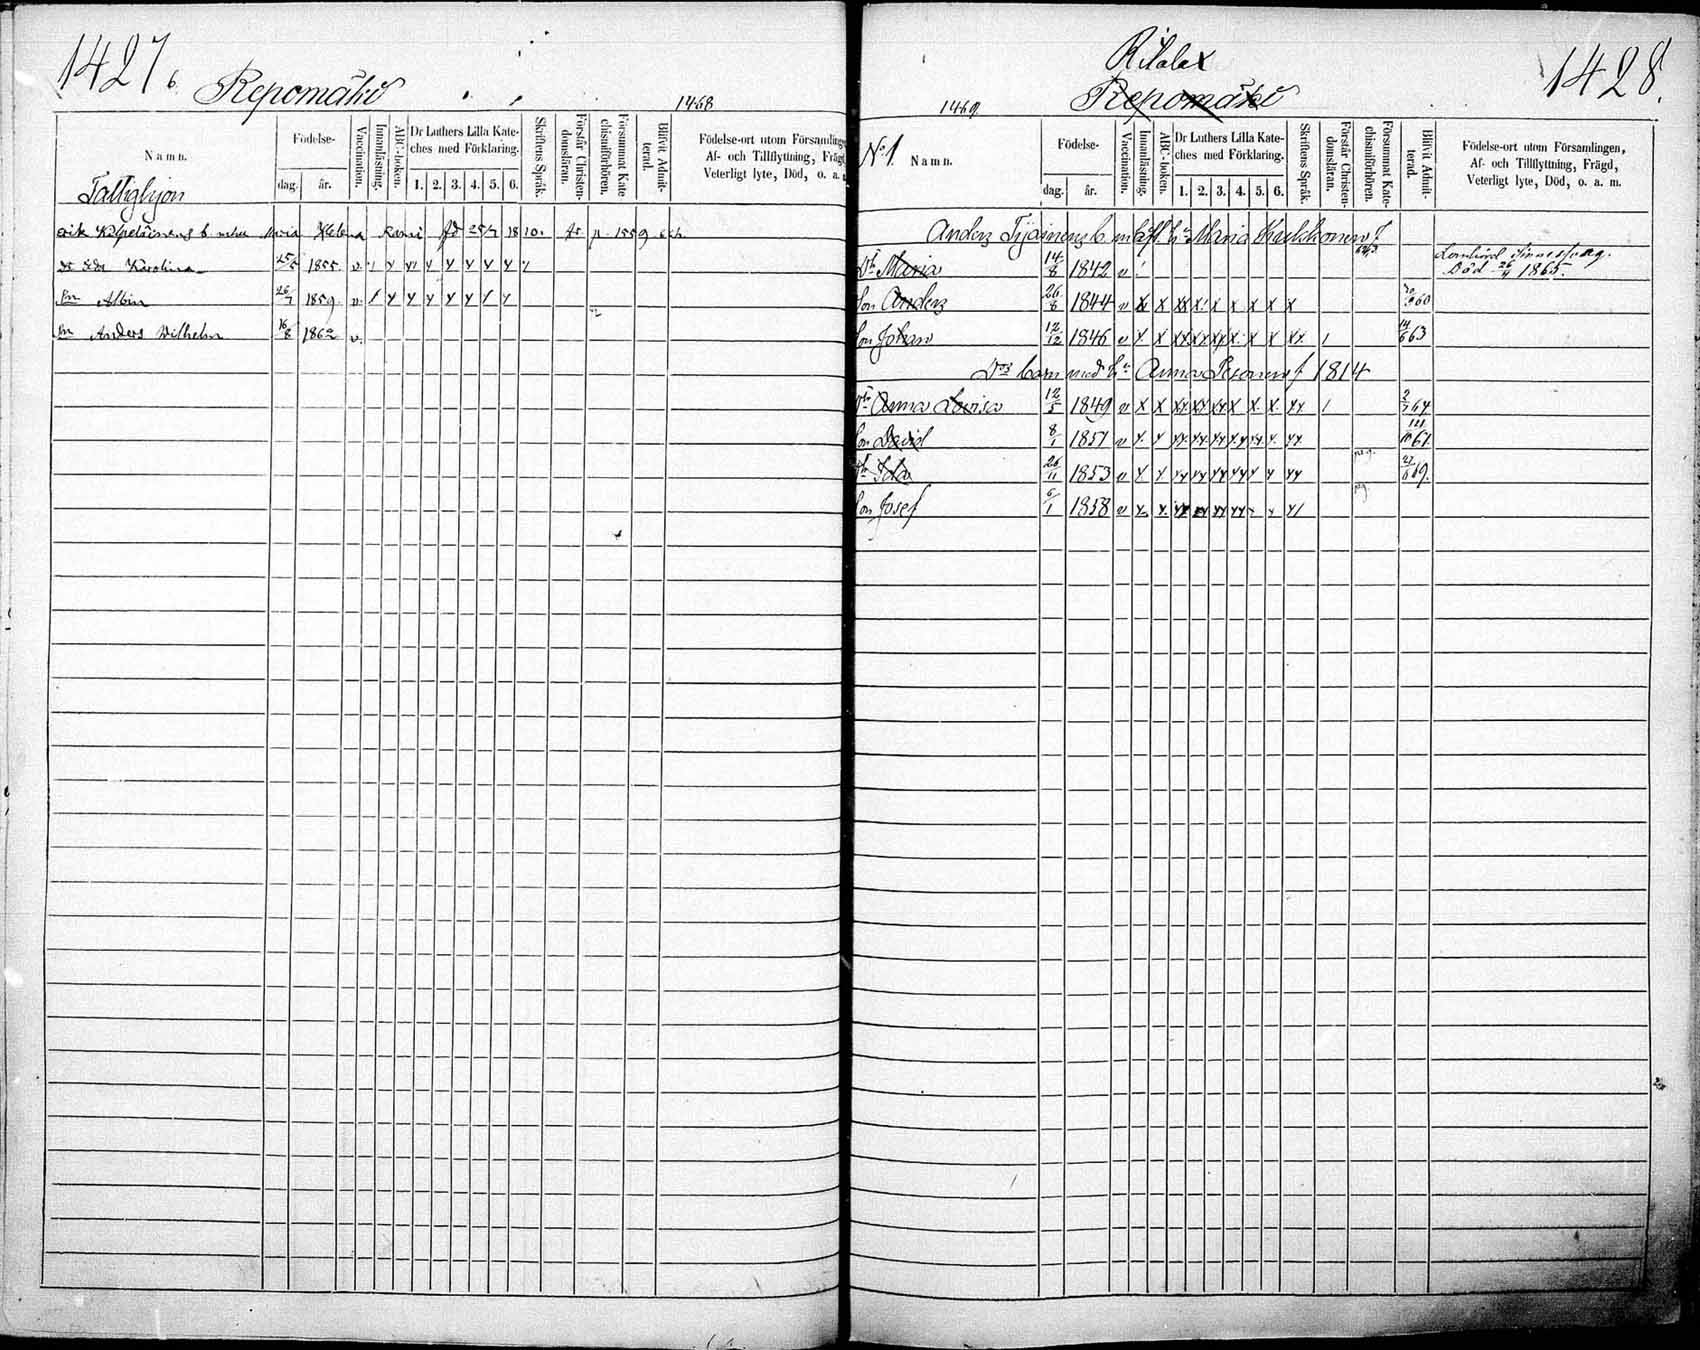 1427
Repomäki
1468
Namn.
Födelse-
dag.
år.
Vaccination.
Innanläsning.
ABC-boken.
Dr Luthers Lilla Kate-
ches med Förklaring.
1. 2. 3. 4. 5. 6.
Skriftens Språk.
Förstår Christen-
domsläran.
Försummat Kate
chismiförhören.
Blifvit Admit-
terad.
Födelse-ort utom Församlingen
Af- och Tillflyttning, Frägd,
Veterligt lyte, Död, o. a. m.
Maria Helena 25/7 1810. p. 1559
Karolina 25/5 1855. v.
Son Albin 26/7 1859. v.
Son Anders Wilhelm 16/8 1862 v.
Ritala
1428.
1469
Repomäki
No 1
Namn.
Födelse-
dag.
år.
Vaccination.
Innanläsning.
ABC-boken.
Dr Luthers Lilla Kate-
ches med Förklaring.
1. 2. 3. 4. 5. 6.
Skriftens Språk.
Förstår Christen-
domsläran.
Försummat Kate-
chismiförhören.
Blifvit Admit-
terad.
Födelse-ort utom Församlingen,
Af- och Tillflyttning, Frägd,
Veterligt lyte, Död, o. a. m.
Anders b. m. Maria
Dr Maria 14/8 1842 v Död 26/4 1865.
Son Anders 26/8 1844 v x x xx x x x x x x 60
Son Johan 12/12 1846 v 1 14/6 63
barn med Anna 1814
Dr Anna Lovisa 12/5 1849 v 1 64
Son David 8/1 1851 v 67.
Dr Ida 26/11 1853 v 69.
Son Josef 6/1 1858 v